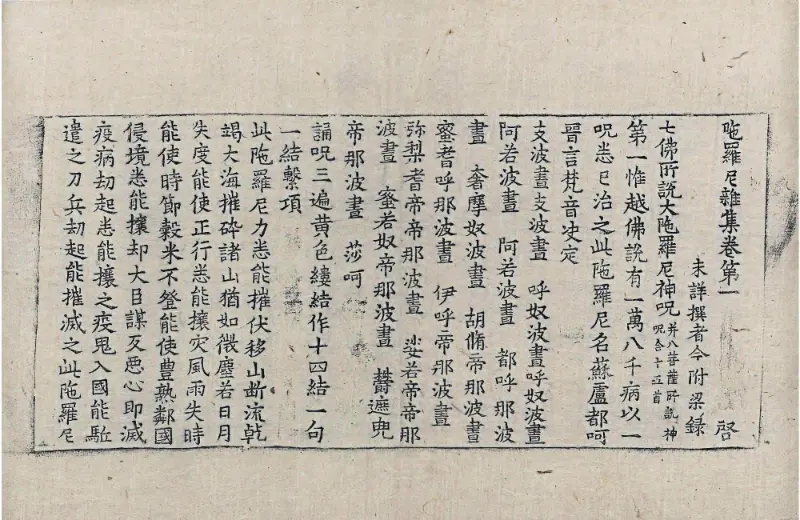 陁羅尼雜集卷第一 啓
未詳撰者今附梁録
七佛所說大陁羅尼神呪并八菩薩所說神呪合十五首
第一惟越佛說有一萬八千病以一
呪悉已治之此陁羅尼名蘇盧都呵
晉言梵音决定
支波晝支波晝 呼奴波晝呼奴波晝
阿若波晝 阿若波晝 都呼那波
晝 奢摩奴波晝 胡脩帝那波晝
蜜耆呼那波晝 伊呼帝那波晝
弥梨耆帝帝那波晝 娑若帝帝那
波晝 蜜若奴帝那波晝 遮兜
帝那波晝 莎呵
誦呪三遍黄色縷結作十四結一句
一結繫項
此陁羅尼力悉能摧伏移山断流乹
竭大海摧碎諸山猶如微塵若日月
失度能使正行悉能攘灾風雨失時
能使時節穀米不登能使豊熟鄰國
侵境悉能攘却大臣謀反惡心即滅
疫病劫起悉能攘之疫鬼入國能駈
遣之刀兵劫起能摧滅之此陁羅尼